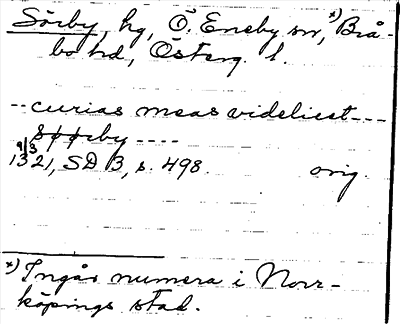 Sörby, hg, Ö. Eneby sn, *) Brå-
bo hd, Österg. l.
-- curias meas videlicet ---
Søøreby ----
9/3 1321, SD 3, s. 498. orig.
*) Ingår numera i Norr-
köpings stad.